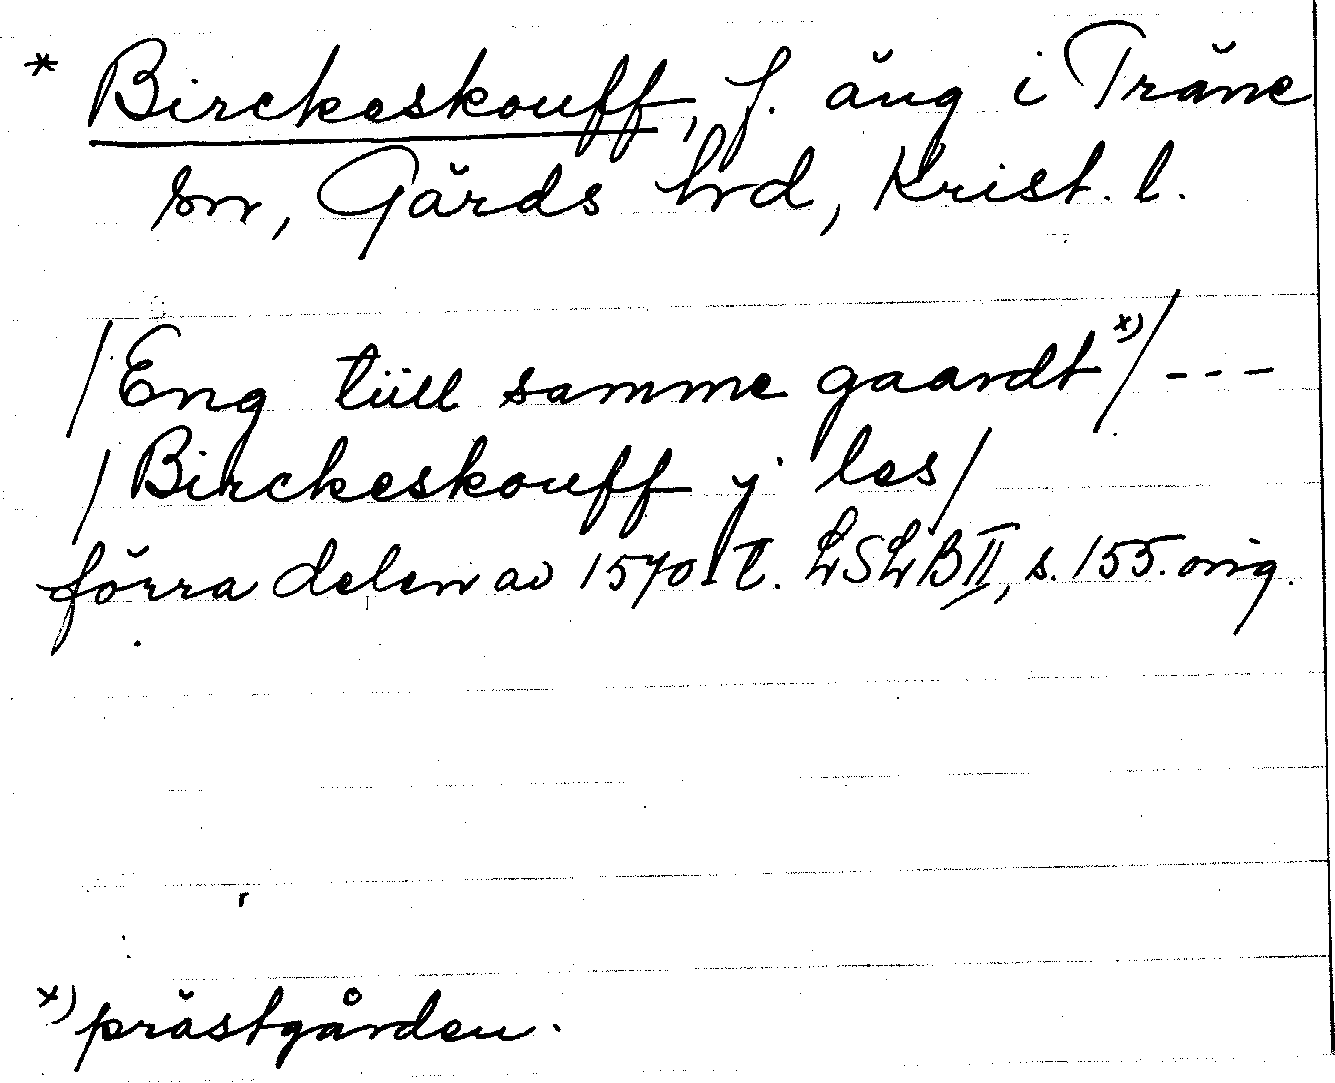 * Birckeskouff, f. äng i Träne
sn, Gärds hrd, Krist. l.
/Eng tüll samme gaardt x)/ - - -
/Birckeskouff j les/
förra delen av 1570-t. LSLB II, s. 155. orig.
x) prästgården.